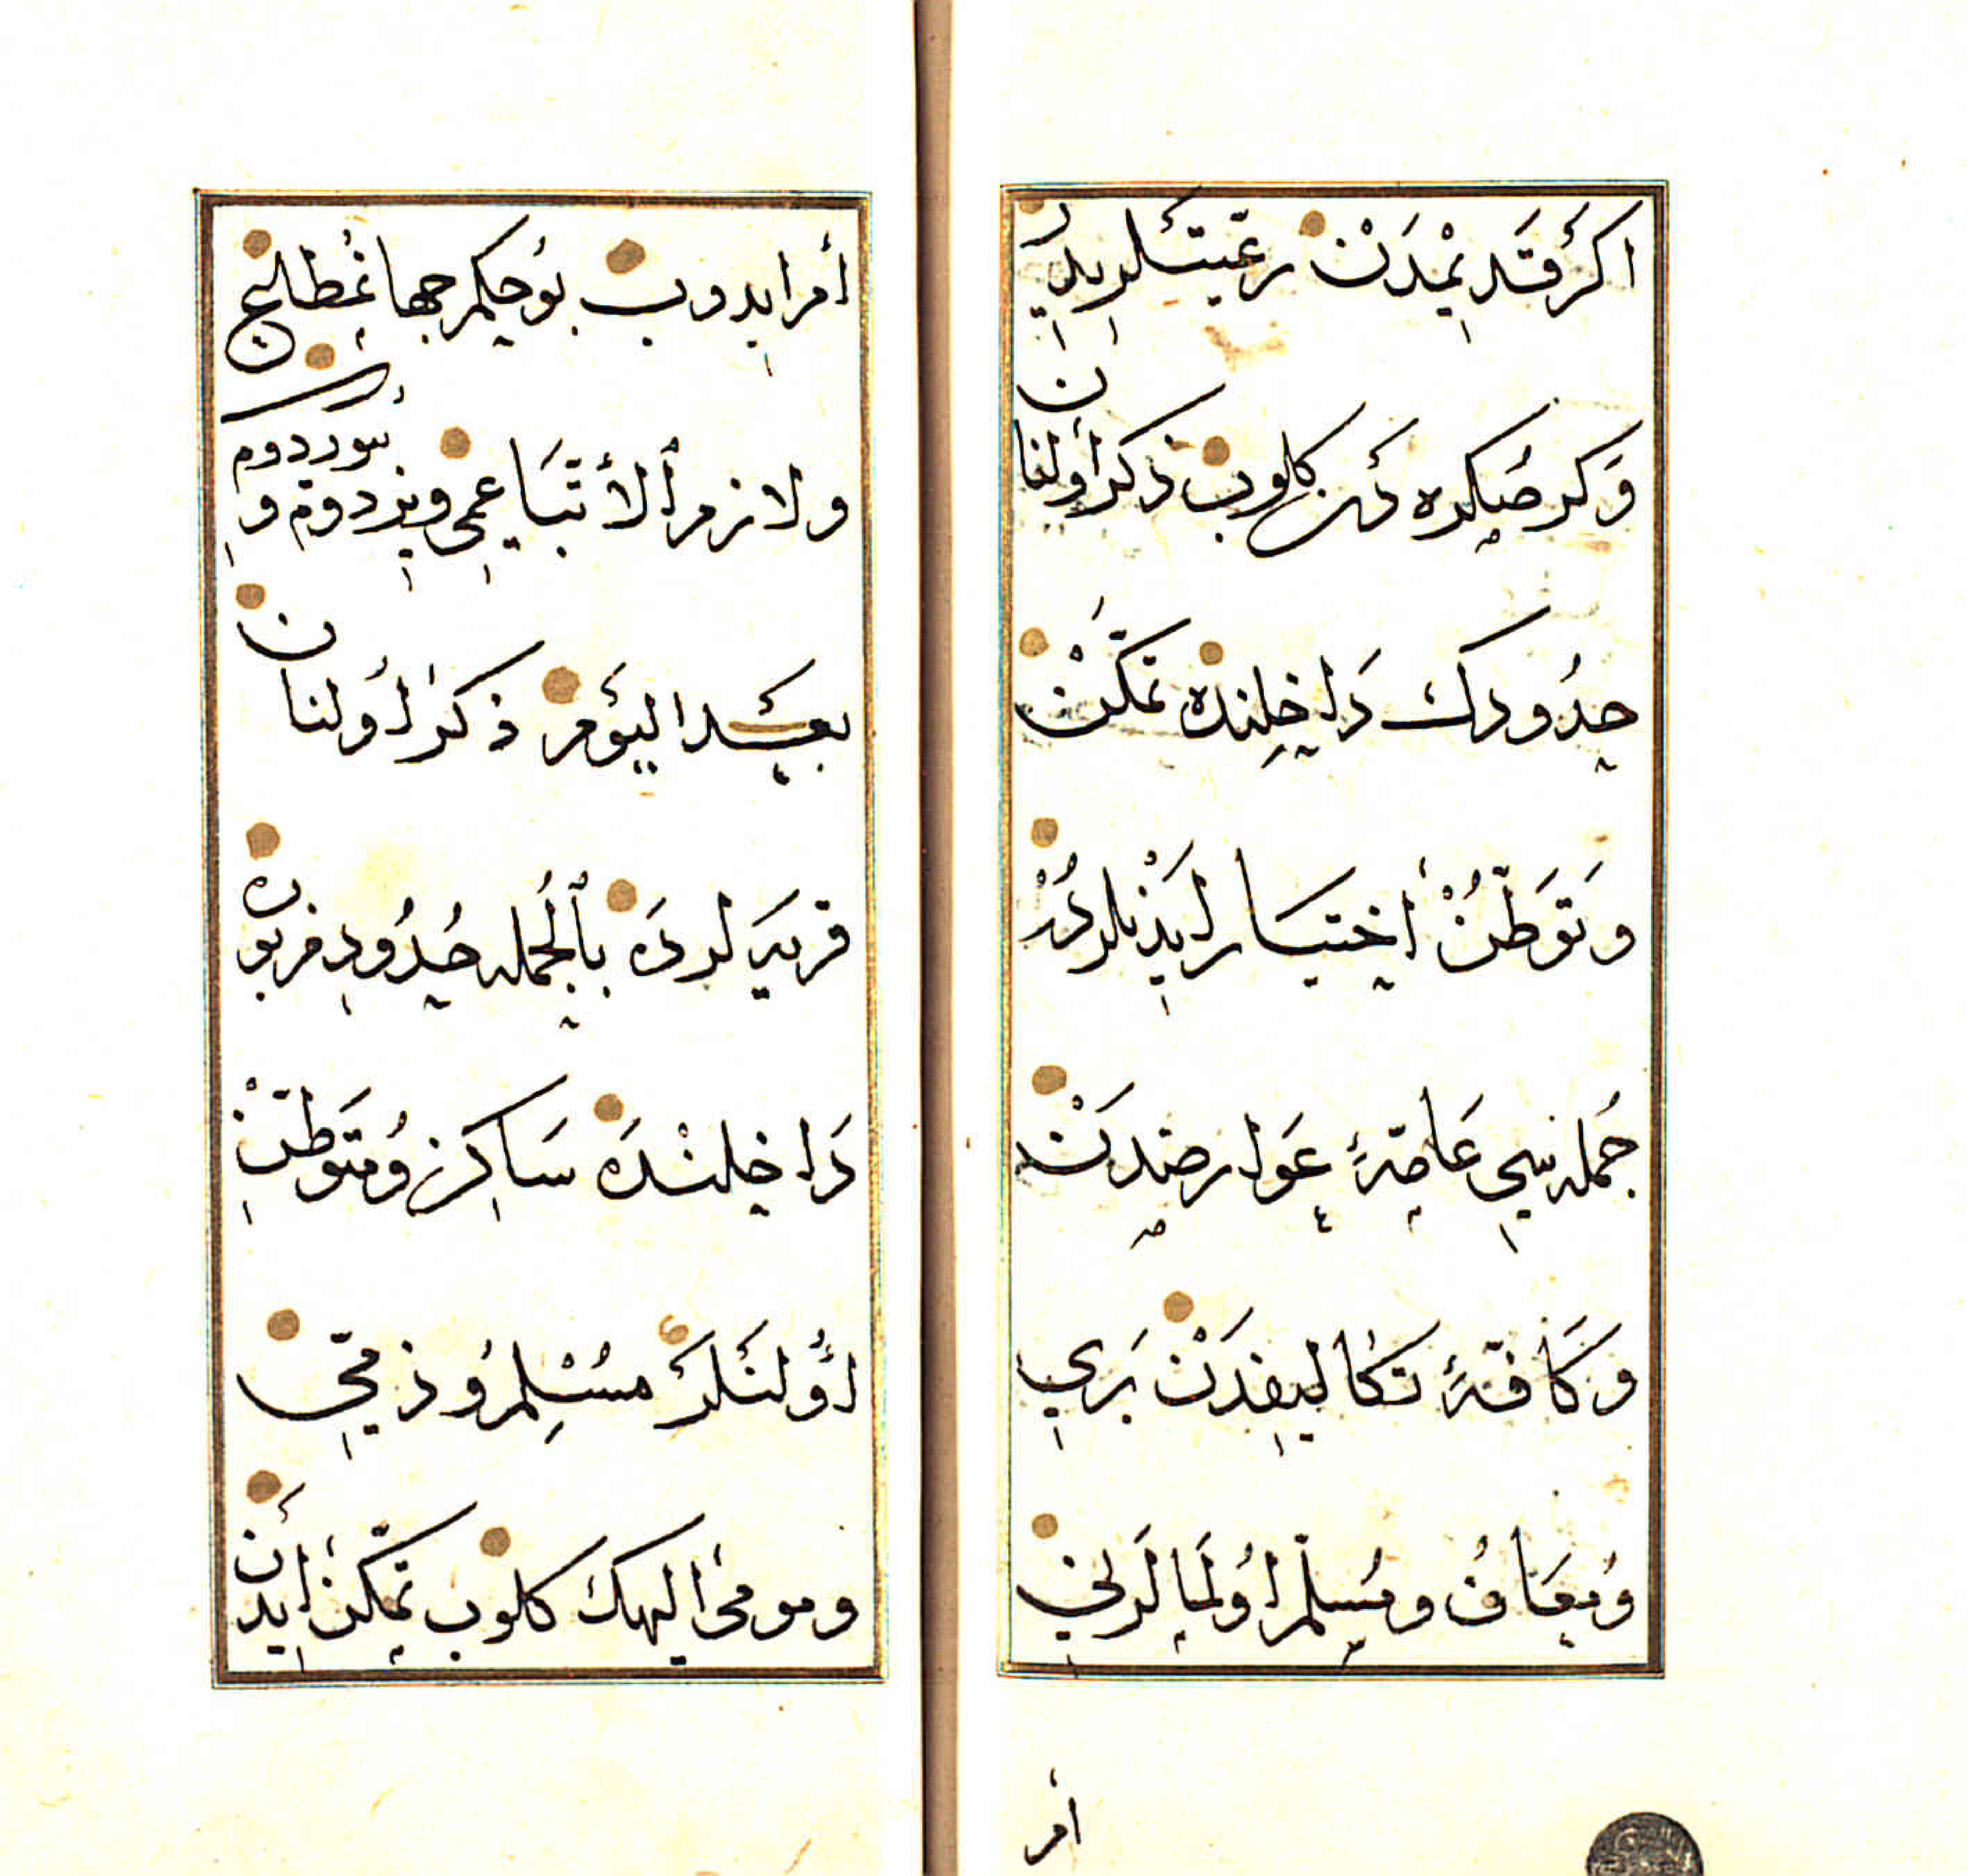 اكر قديمدن رعيتلريدر
وكر صكره دن كلوب ذكر اولنان
حدودك داخلنده تمكن
وتوطن اختيار ايدنلردر
جمله سي عامۀ عوارضدن
وكافۀ تكاليفدن بري
ومعاف ومسلم اولمالرين
امر
امر ايدوب بو حكم جهانمطالعي
ولازم الاتباعمي ويردوم وبيوردومكه
بعد اليوم ذكر اولنان
قريه لرده بالجمله حدود مزبوره
داخلنده ساكن ومتوطن
اولنلرك مسلم وذميي
ومومى اليهك كلوب تمكن ايدن